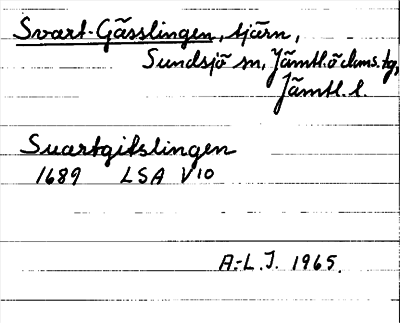 Svart-Gässlingen, tjärn,
Sundsjö sn, Jämtl. ö dms. tg,
Jämtl. l.
Suartgitslingen
1689 LSA V10
A.-L. J. 1965.